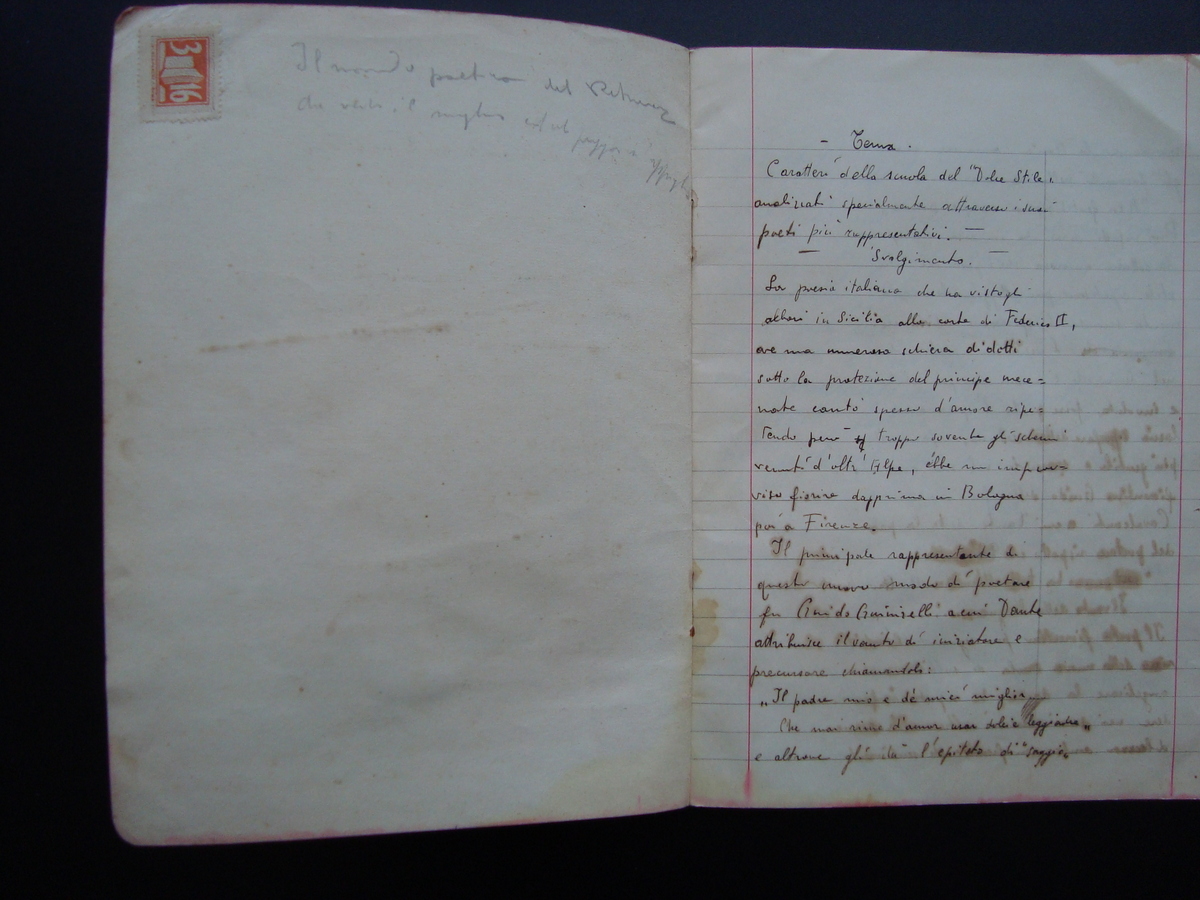 3 16
Il mondo poetico del
che il
- Tema.
Caratteri della scuola del "Dolce Stile"
analizzati specialmente attraverso i suoi
poeti più rappresentativi. —
— Svolgimento. —
La poesia italiana che ha visto gli
albori in Sicilia alla corte di Federico II,
ove una numerosa schiera di dotti
sotto la protezione del principe mece=
nate cantò spesso d'amore ripe=
tendo però troppo sovente gli schemi
venuti d'oltr'Alpe, ebbe un improv-
viso fiorire dapprima in Bologna
poi a Firenze.
Il principale rappresentante di
questo nuovo modo di poetare
fu Guido Guinizelli a cui Dante
attribuisce il vanto di iniziatore e
precursore chiamandolo:
„Il padre mio e de miei miglior
Che mai rime d'amor usar dolci e leggiadre„
e altrove gli da l'epiteto di "saggio„